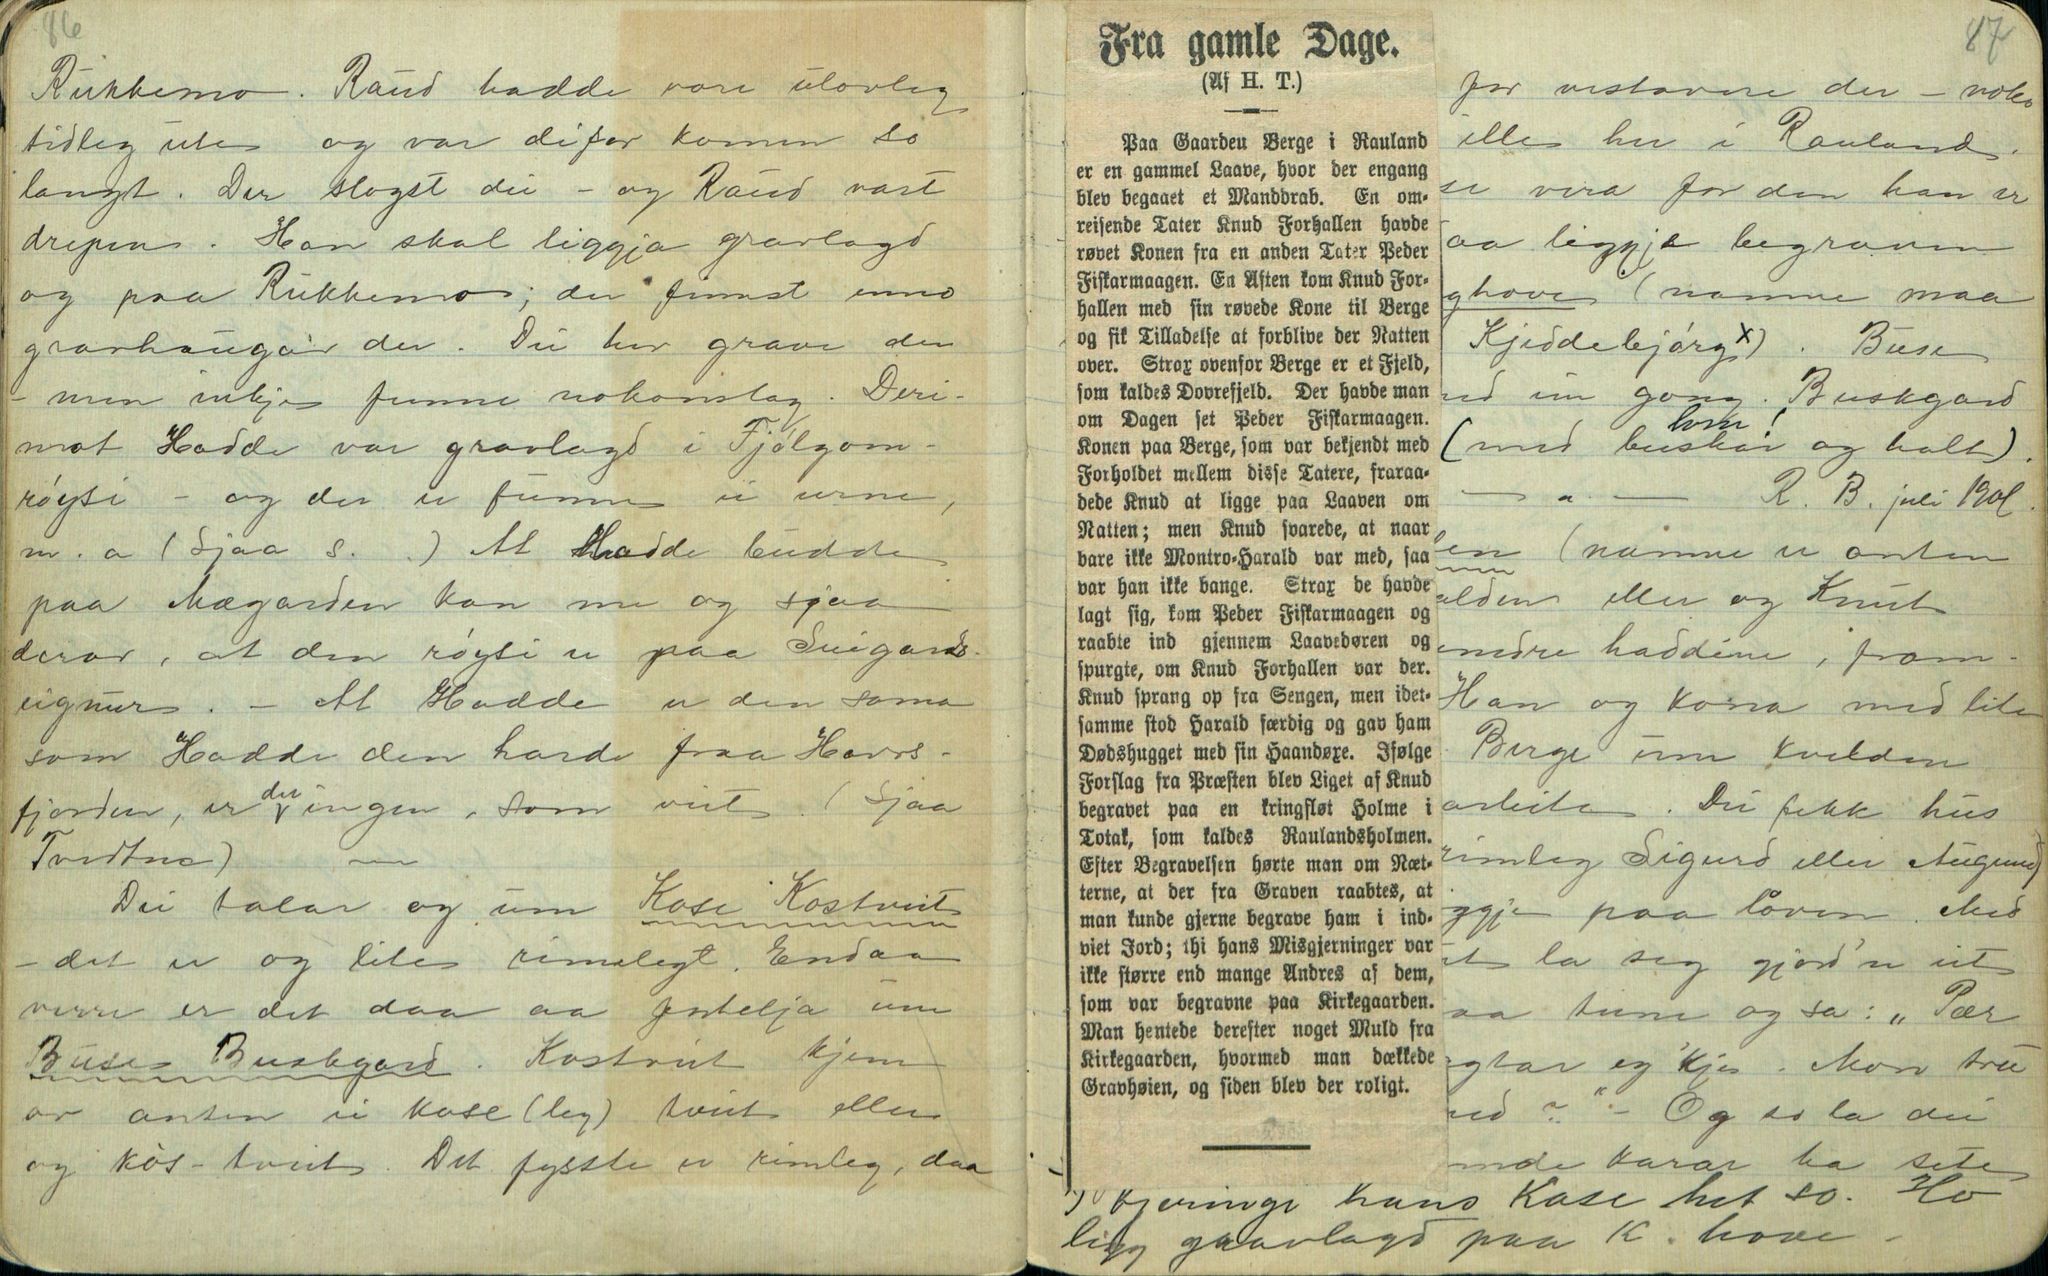 86
Rukkemo. Raud hadde vore ulovleg
tidleg ute og var difor komen so
langt. Der slogst dei - og Raud vart
drepen. Han skal liggja gravlagd
og paa Rukkemo; der finnst enno
gravhaugar der. Dei har grave der
- men inkje funne nokonslag. Deri-
mot Hadde var gravlagd i Fjølgom-
røysi - og der er funne ei urne,
m. a (sjaa s. ) At Hadde budde
paa Mægarden kan me og sjaa
derav, at den røysi er paa Suigards-
eignur. - At Hadde er den same
som Hadde den harde fraa Hovrs-
fjorden, er der ingen, som veit. (sjaa
Tvedtne)
Dei talar og um Kose Kostveit
- det er og lite rimelegt. Endaa
verre er det daa aa fortelja um
Buse Buskgard. Kostveit kjem
av anten ei kose (leg) tveit eller
og kòs-tveit. Det fyrste er rimleg, daa
87
Fra gamle Dage.
(Af H. T.)
Paa Gaarden Berge i Rauland
er en gammel Laave, hvor der engang
blev begaaet et Manddrab. En om-
reisende Tater Knud Forhallen havde
røvet Konen fra en anden Tater Peder
Fiskarmaagen. En Aften kom Knud For-
hallen med sin røvede Kone til Berge
og fik Tilladelse at forblive der Natten
over. Strax ovenfor Berge er et Fjeld,
som kaldes Dovrefjeld. Der havde man
om Dagen set Peder Fiskarmaagen.
Konen paa Berge, som var bekjendt med
Forholdet mellem disse Tatere, fraraa-
dede Knud at ligge paa Laaven om
Natten; men Knud svarede, at naar
bare ikke Montro-Harald var med, saa
var han ikke bange. Strax de havde
lagt sig, kom Peder Fiskarmaagen og
raabte ind gjennem Laavedøren og
spurgte, om Knud Forhallen var der.
Knud sprang op fra Sengen, men idet-
samme stod Harald færdig og gav ham
Dødshugget med sin Haandøxe. Ifølge
Forslag fra Præsten blev Liget af Knud
begravet paa en kringfløt Holme i
Totak, som kaldes Raulandsholmen.
Efter Begravelsen hørte man om Næt-
terne, at der fra Graven raabtes, at
man kunde gjerne begrave ham i ind-
viet Jord; thi hans Misgjerninger var
ikke større end mange Andres af dem,
som var begravne paa Kirkegaarden.
Man hentede derefter noget Muld fra
Kirkegaarden, hvormed man dækkede
Gravhøien, og siden blev der roligt.
for vestovere der - noko
elles her i Rauland.
se vera for den han er
aa liggje begraven
ghove (namne maa
Kjeddebjørg x). Buse
ein gong. Buskgard
(med buskar og holt).
R. B. juli 1901.
en (namne er anten
alden eller og Knut
andre haddine, fram-
Han og kona med lite
Berge um kvelden
arbeite. Dei fekk hus
rimleg Sigurd eller Augund)
ggje paa låven. Med
la seg gjord'n eit
aa tune og sa: "Pær
gtar eg 'kje. Mon tru
?" - Og so la dei
karar ha sete
x) kjeringe hans Kose het so. Ho
ligg gravlagd paa K. hove -